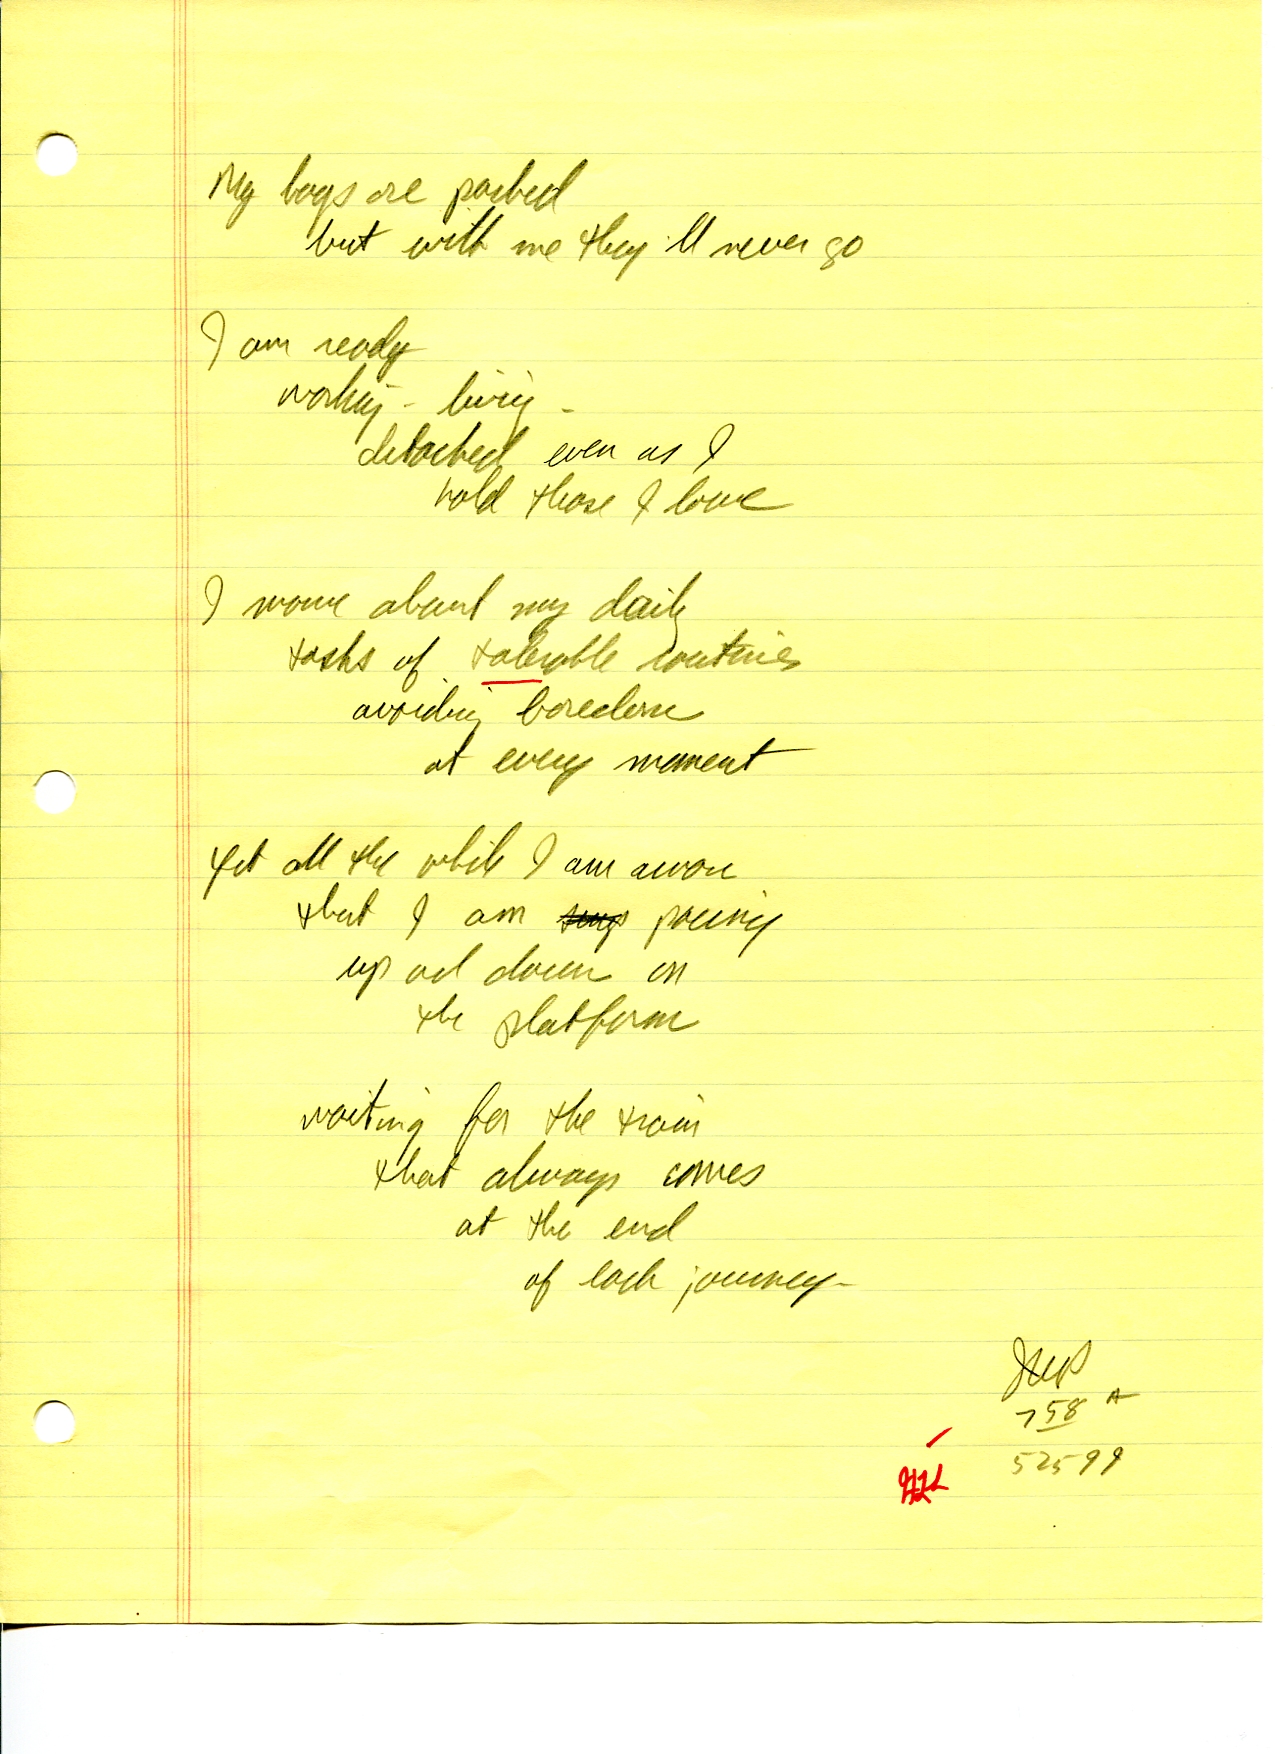 My bags are packed
but with me they'll never go
I am ready
working - living -
detached even as I
hold those I love
I move about my daily
tasks of tolerable routines
avoiding boredom
at every moment
Yet all the while I am aware
that I am pacing
up and down on
the platform
waiting for the train
that always comes
at the end
of each journey-
758 A
52599